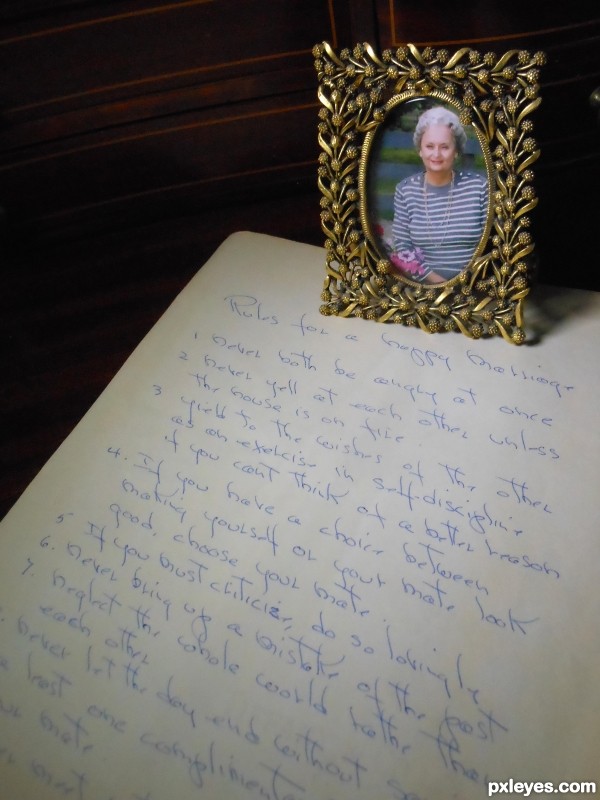 Rules for a happy marriage
1 never both be angry at once
2 never yell at each other unless
the house is on fire.
3 yield to the wishes of the other
as an exercise in self-discipline
if you cant think of a better reason
4. If you have a choice between
making yourself or your mate look
good, choose your mate.
5 If you must criticize, do so lovingly
6. never bring up a mistake of the past
7. neglect the whole world rather than
each other
never let the day end without
least one compliment
mate
pxleyes.com